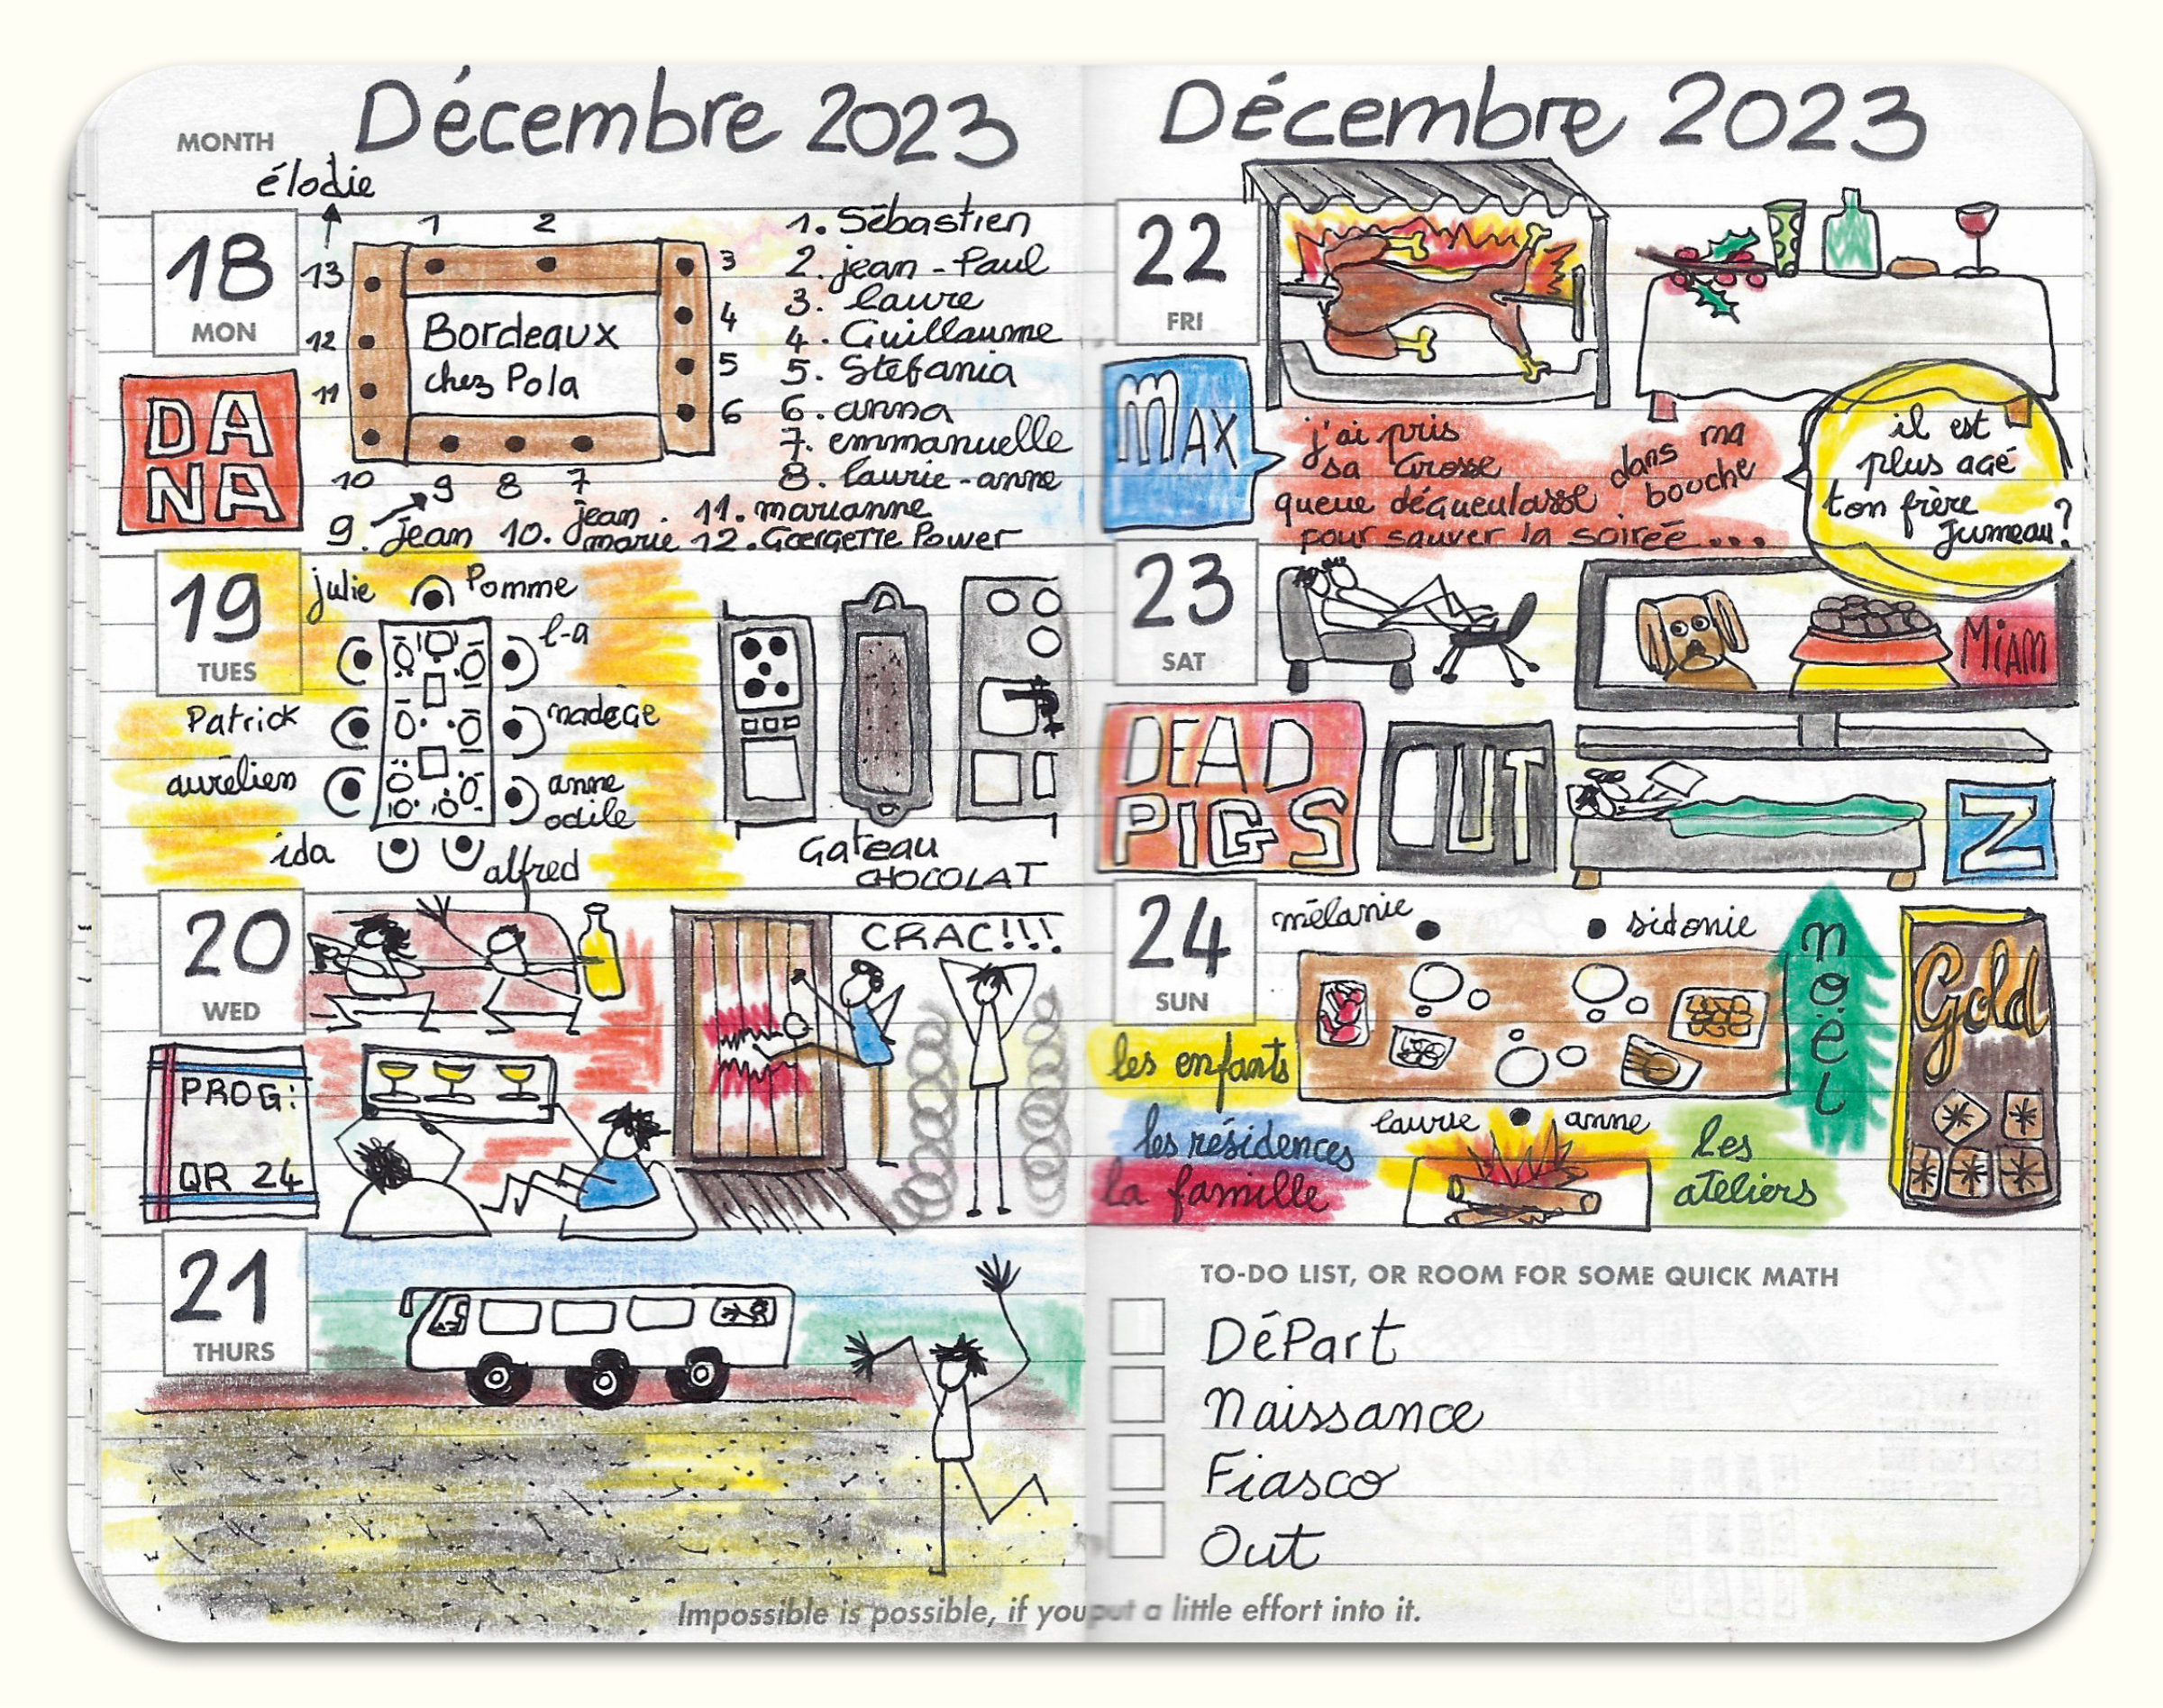 MONTH
Décembre 2023
élodie
18
MON
DA
NA
1
2
3
4
5
6
7
8
9
10
11
12
13
Bordeaux
chez Pola
1. Sébastien
2. jean-Paul
3. laure
4. Guillaume
5. Stefania
6. anna
7. emmanuelle
8. laurie-anne
9. jean 10. jean marie 11. marianne
12. Goergette Power
19
TUES
julie
Pomme
l-a
Patrick
nadège
aurélien
anne
odile
ida
alfred
Gateau
CHOCOLAT
20
WED
CRAC!!!
PROG:
QR 24
21
THURS
Décembre 2023
22
FRI
MAX
j'ai pris
sa Grosse
queue dégueulasse dans ma bouche
pour sauver la soirée...
il est
plus agé
ton frère
Jumeau?
23
SAT
MIAM
DEAD
PIGS
OUT
Z
24
SUN
mélanie
sidonie
noël
Gold
les enfants
laurie anne
les résidences
la famille
les
ateliers
TO-DO LIST, OR ROOM FOR SOME QUICK MATH
DéPart
Naissance
Fiasco
Out
Impossible is possible, if you put a little effort into it.